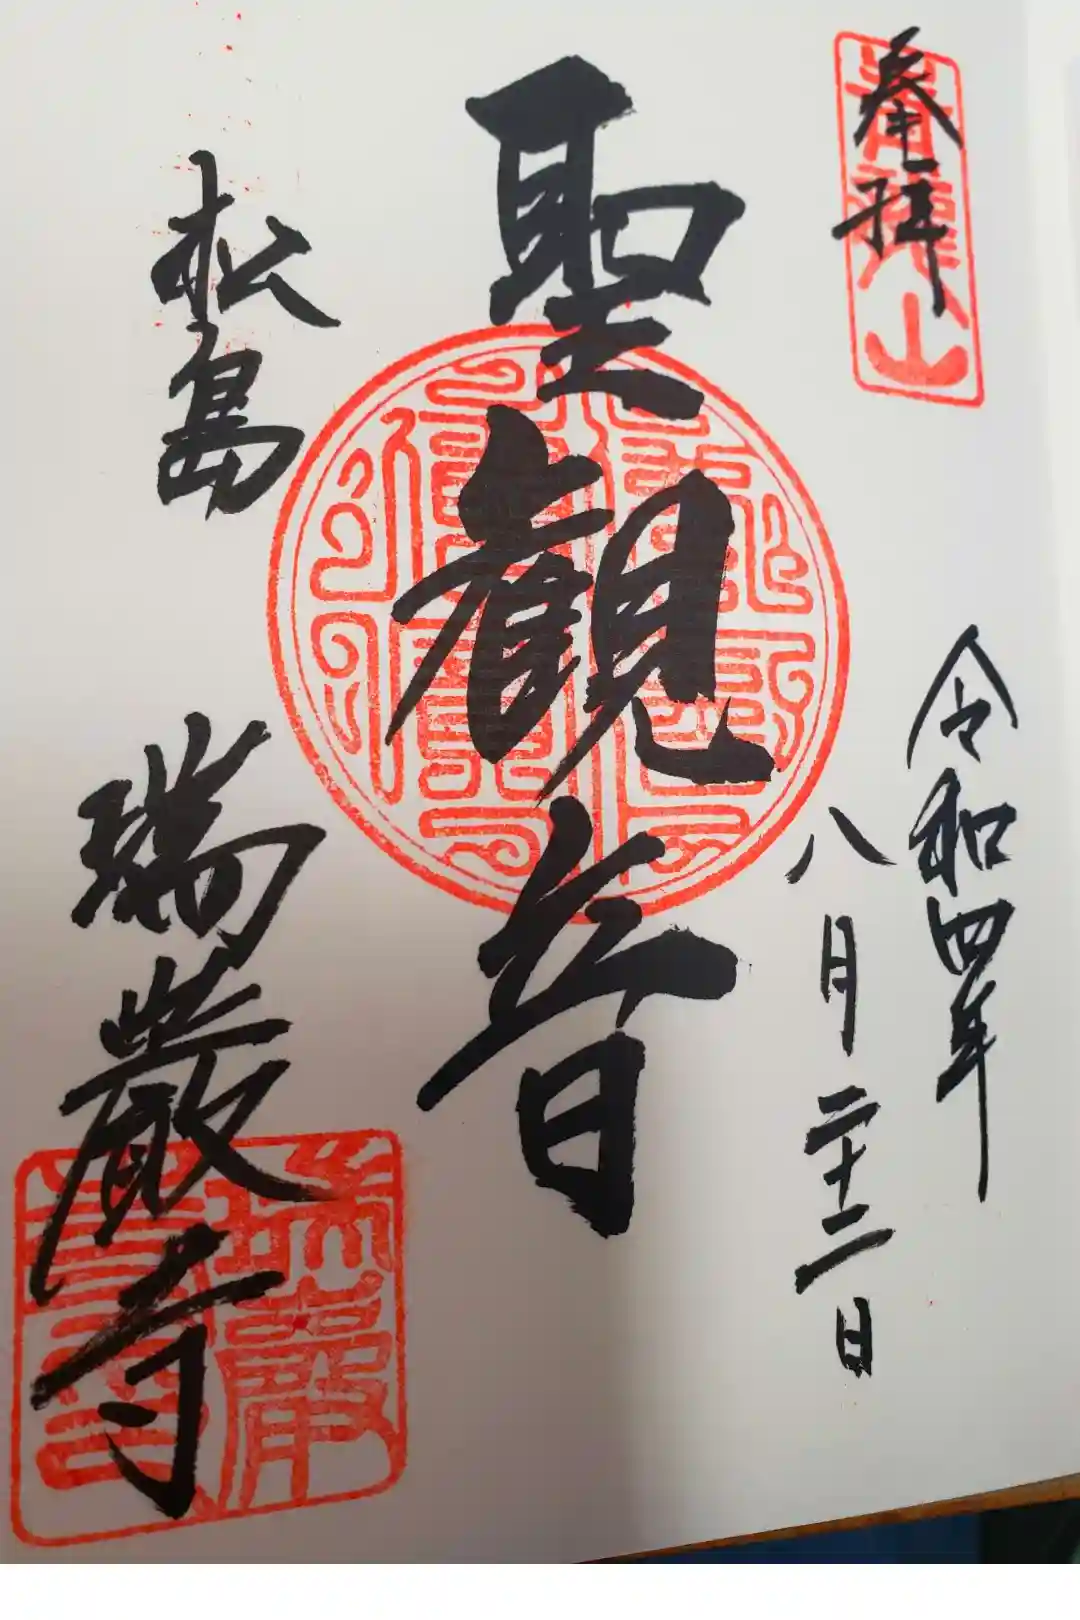 奉拝
青龍山
令和四年
八月二十二日
聖観音
松島
瑞巌寺